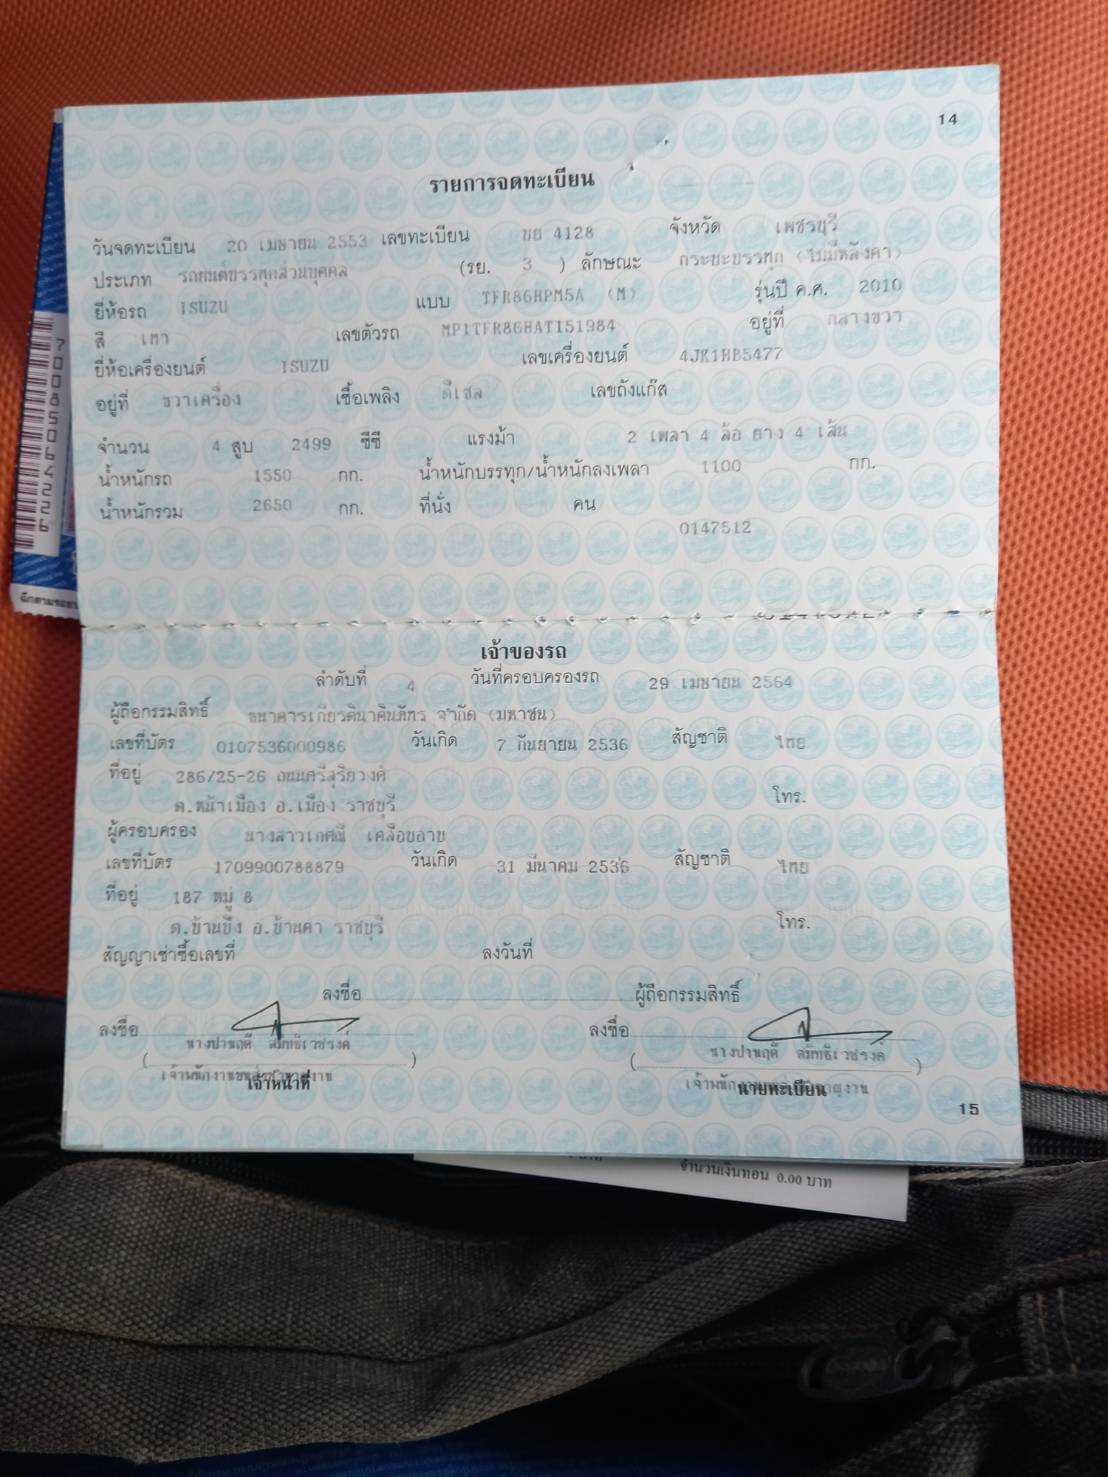 14
รายการจดทะเบียน
วันจดทะเบียน 20 เมษายน 2553 เลขทะเบียน บย 4128 จังหวัด เพชรบุรี
ประเภท รถยนต์บรรทุกส่วนบุคคล (รย. 3 ) ลักษณะ กระบะบรรทุก (ไม่มีหลังคา)
ยี่ห้อรถ ISUZU แบบ TFR86HPM5A (M) รุ่นปี ค.ศ. 2010
สี เทา เลขตัวรถ MP1TFR86HAT151984 อยู่ที่ กลางขวา
ยี่ห้อเครื่องยนต์ ISUZU เลขเครื่องยนต์ 4JK1HB5477
อยู่ที่ ขวาเครื่อง เชื้อเพลิง ดีเซล เลขถังแก๊ส
จำนวน 4 สูบ 2499 ซีซี แรงม้า 2 เพลา 4 ล้อ ยาง 4 เส้น
น้ำหนักรถ 1550 กก. น้ำหนักบรรทุก/น้ำหนักลงเพลา 1100 กก.
น้ำหนักรวม 2650 กก. ที่นั่ง คน
0147512
70085064226
เจ้าของรถ
ลำดับที่ 4 วันที่ครอบครองรถ 29 เมษายน 2564
ผู้ถือกรรมสิทธิ์ ธนาคารเกียรตินาคินภัทร จำกัด (มหาชน)
เลขที่บัตร 0107536000986 วันเกิด 7 กันยายน 2536 สัญชาติ ไทย
ที่อยู่ 286/25-26 ถนนศรีสุริยวงศ์
ต.หน้าเมือง อ.เมือง ราชบุรี โทร.
ผู้ครอบครอง นางสาวเกศณี
เลขที่บัตร 1709900788879 วันเกิด 31 มีนาคม 2536 สัญชาติ ไทย
ที่อยู่ 187 หมู่ 8
ต.บ้านบึง อ.บ้านคา ราชบุรี โทร.
สัญญาเช่าซื้อเลขที่ ลงวันที่
ลงชื่อ ผู้ถือกรรมสิทธิ์
ลงชื่อ ลงชื่อ
( ) ( )
เจ้าหน้าที่ นายทะเบียน
15
จำนวนเงินทอน 0.00 บาท